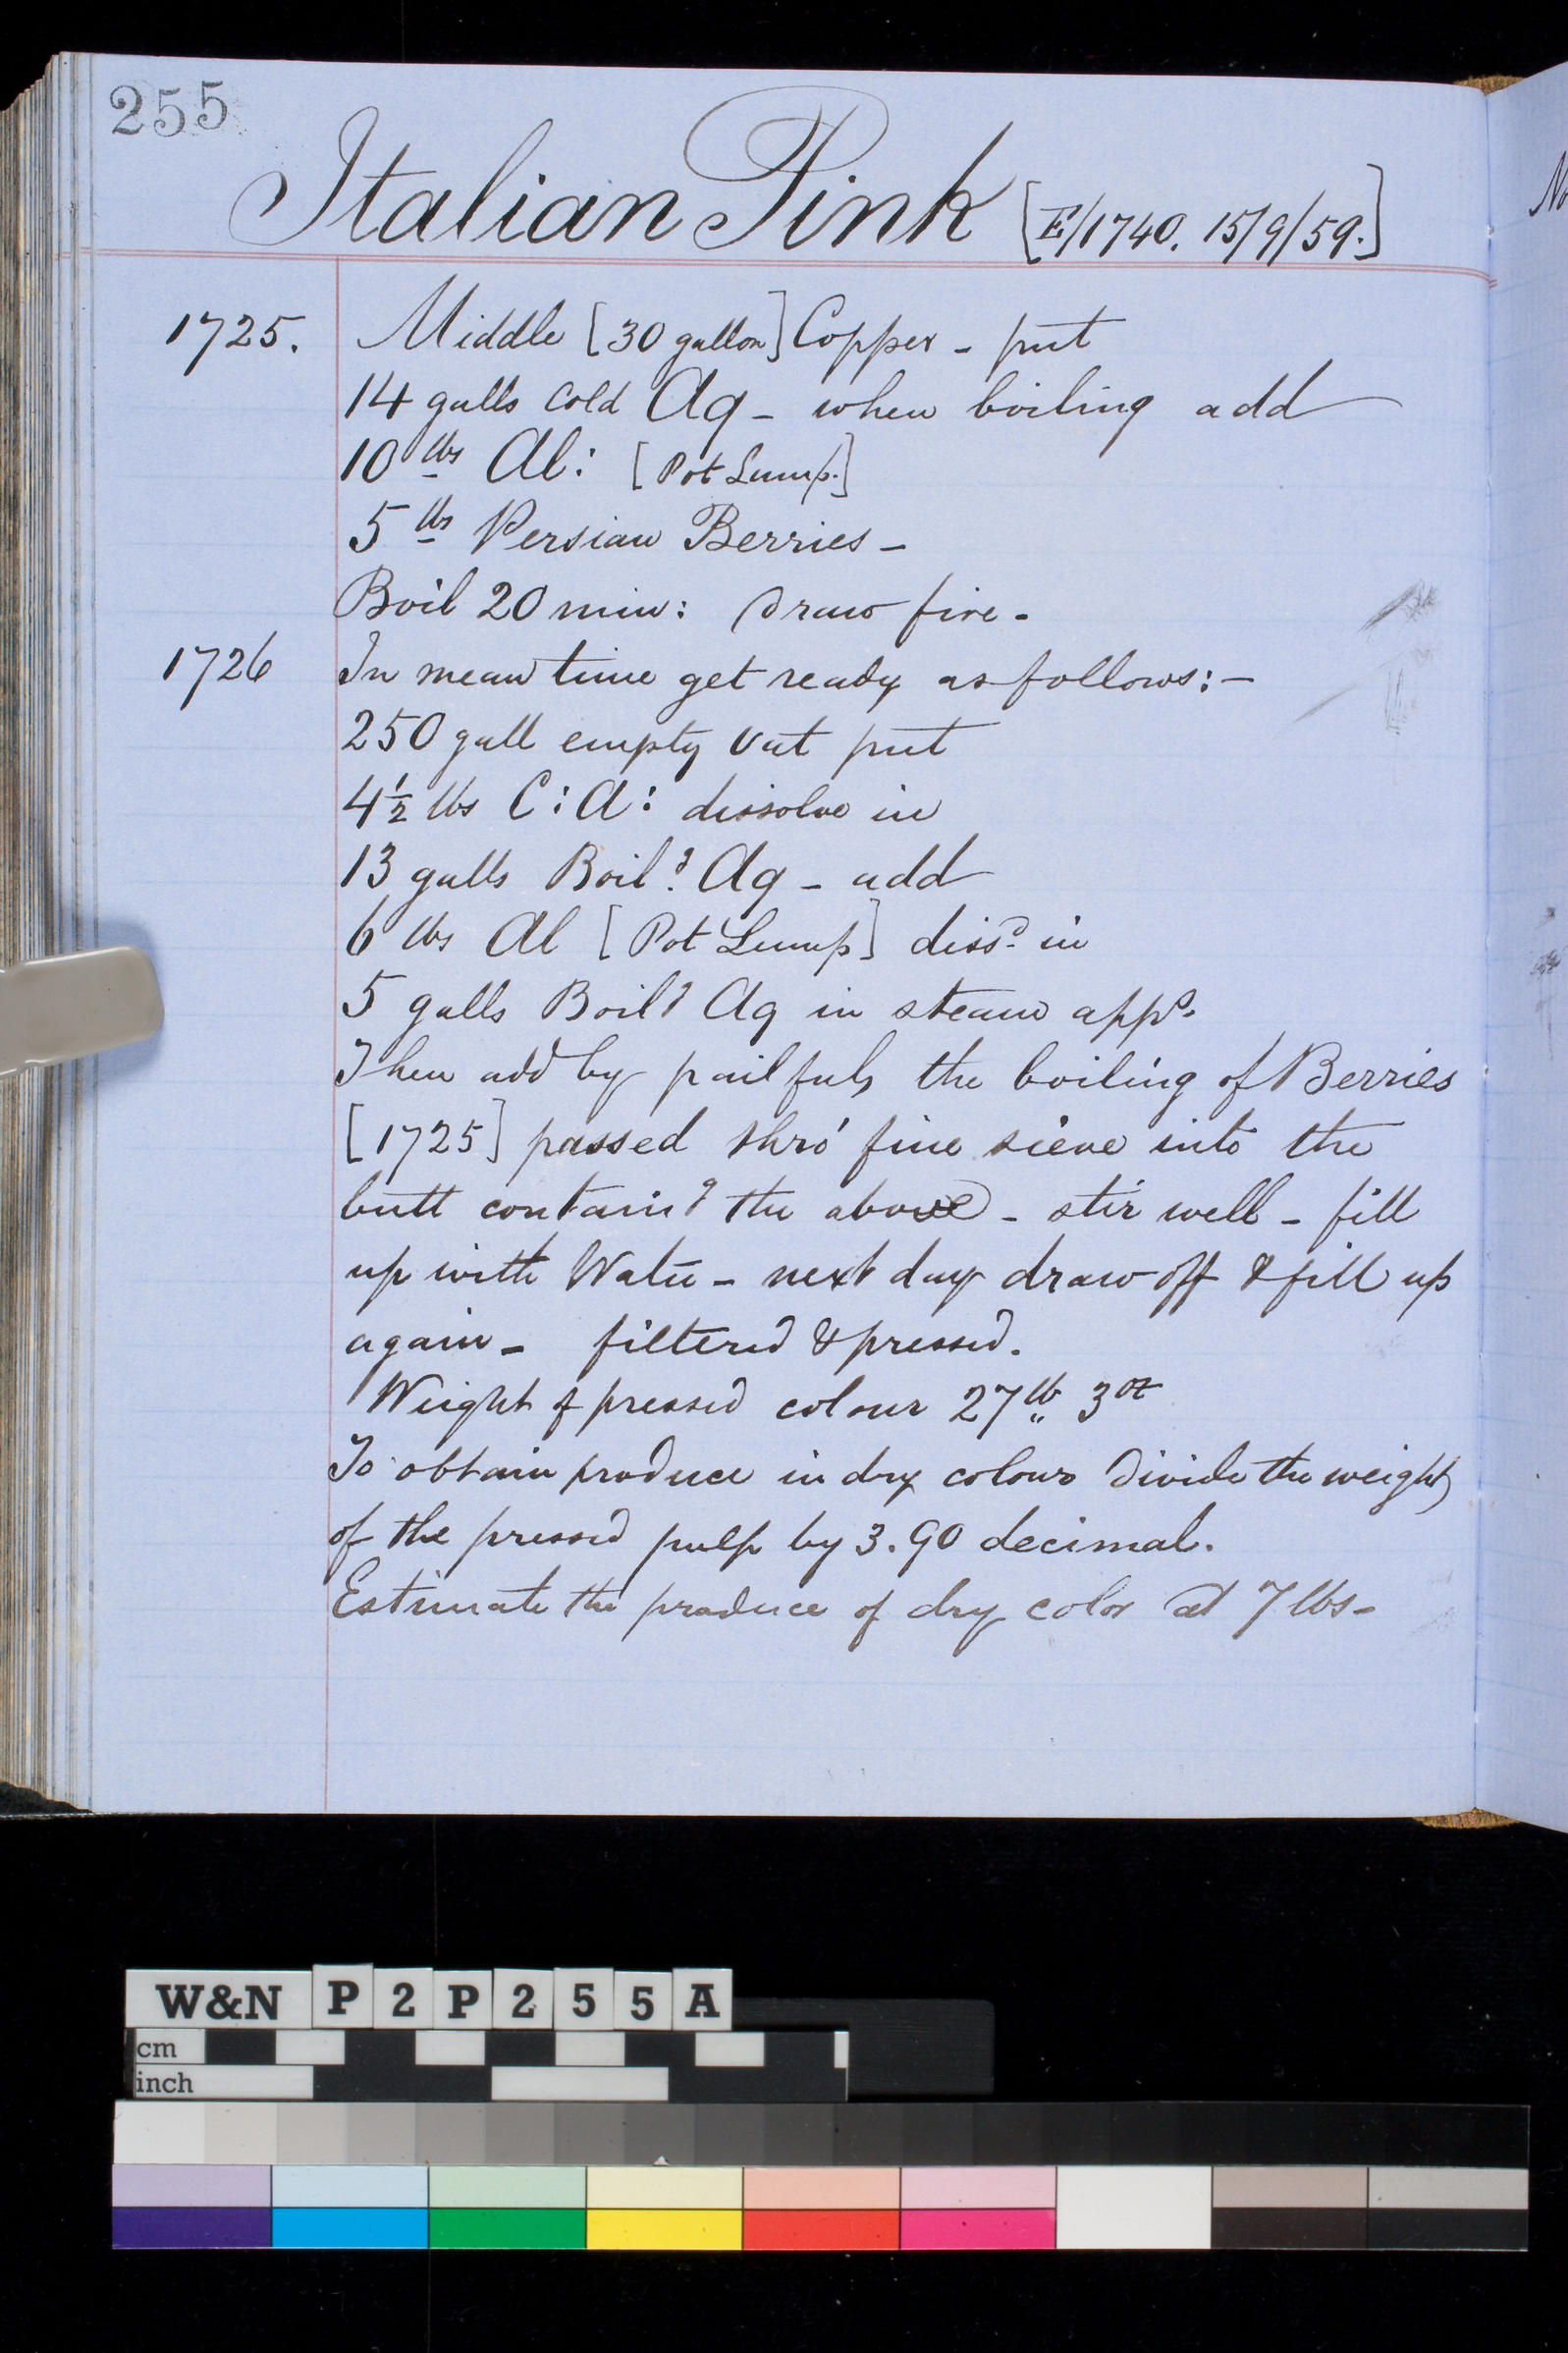 255
Italian Pink [E/1740. 15/9/59.]
1725. Middle [30 gallon] Copper - put
14 galls cold Aq - when boiling add
10 lbs Al: [Pot Lump.]
5 lbs Persian Berries -
Boil 20 min: draw fire -
1726 In mean time get ready as follows:-
250 gall empty vat put
4½ lbs C:A: dissolve in
13 galls Boilg Aq - add
6 lbs Al [Pot Lump] dissd in
5 galls Boilg Aq in steam apps.
Then add by pailfuls the boiling of Berries
[1725] passed thro' fine sieve into the
butt containg the above - stir well - fill
up with Water - next day draw off & fill up
again - filtered & pressed.
Weight of pressed colour 27 lb 3 oz
To obtain produce in dry colour divide the weight
of the pressed pulp by 3.90 decimal.
Estimate the produce of dry color at 7 lbs -
No
W&N P2P255A
cm
inch